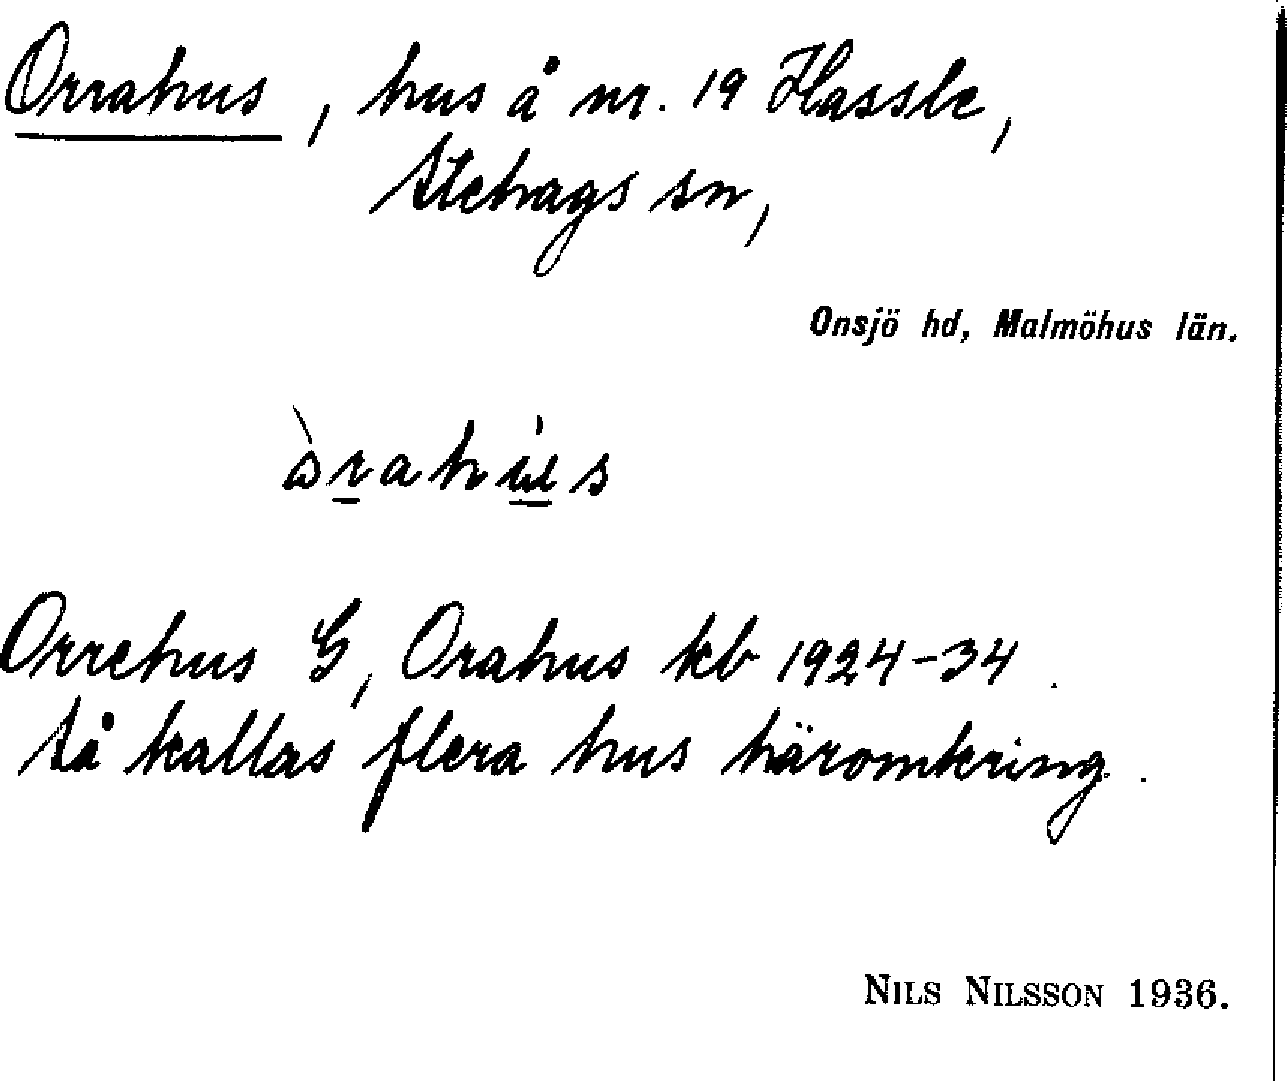 Orrahus, hus å nr. 19 Hassle,
Stehags sn,
Onsjö hd, Malmöhus län.
Orrehus G, Orahus kb 1924-34.
Så kallas flera hus häromkring.
NILS NILSSON 1936.